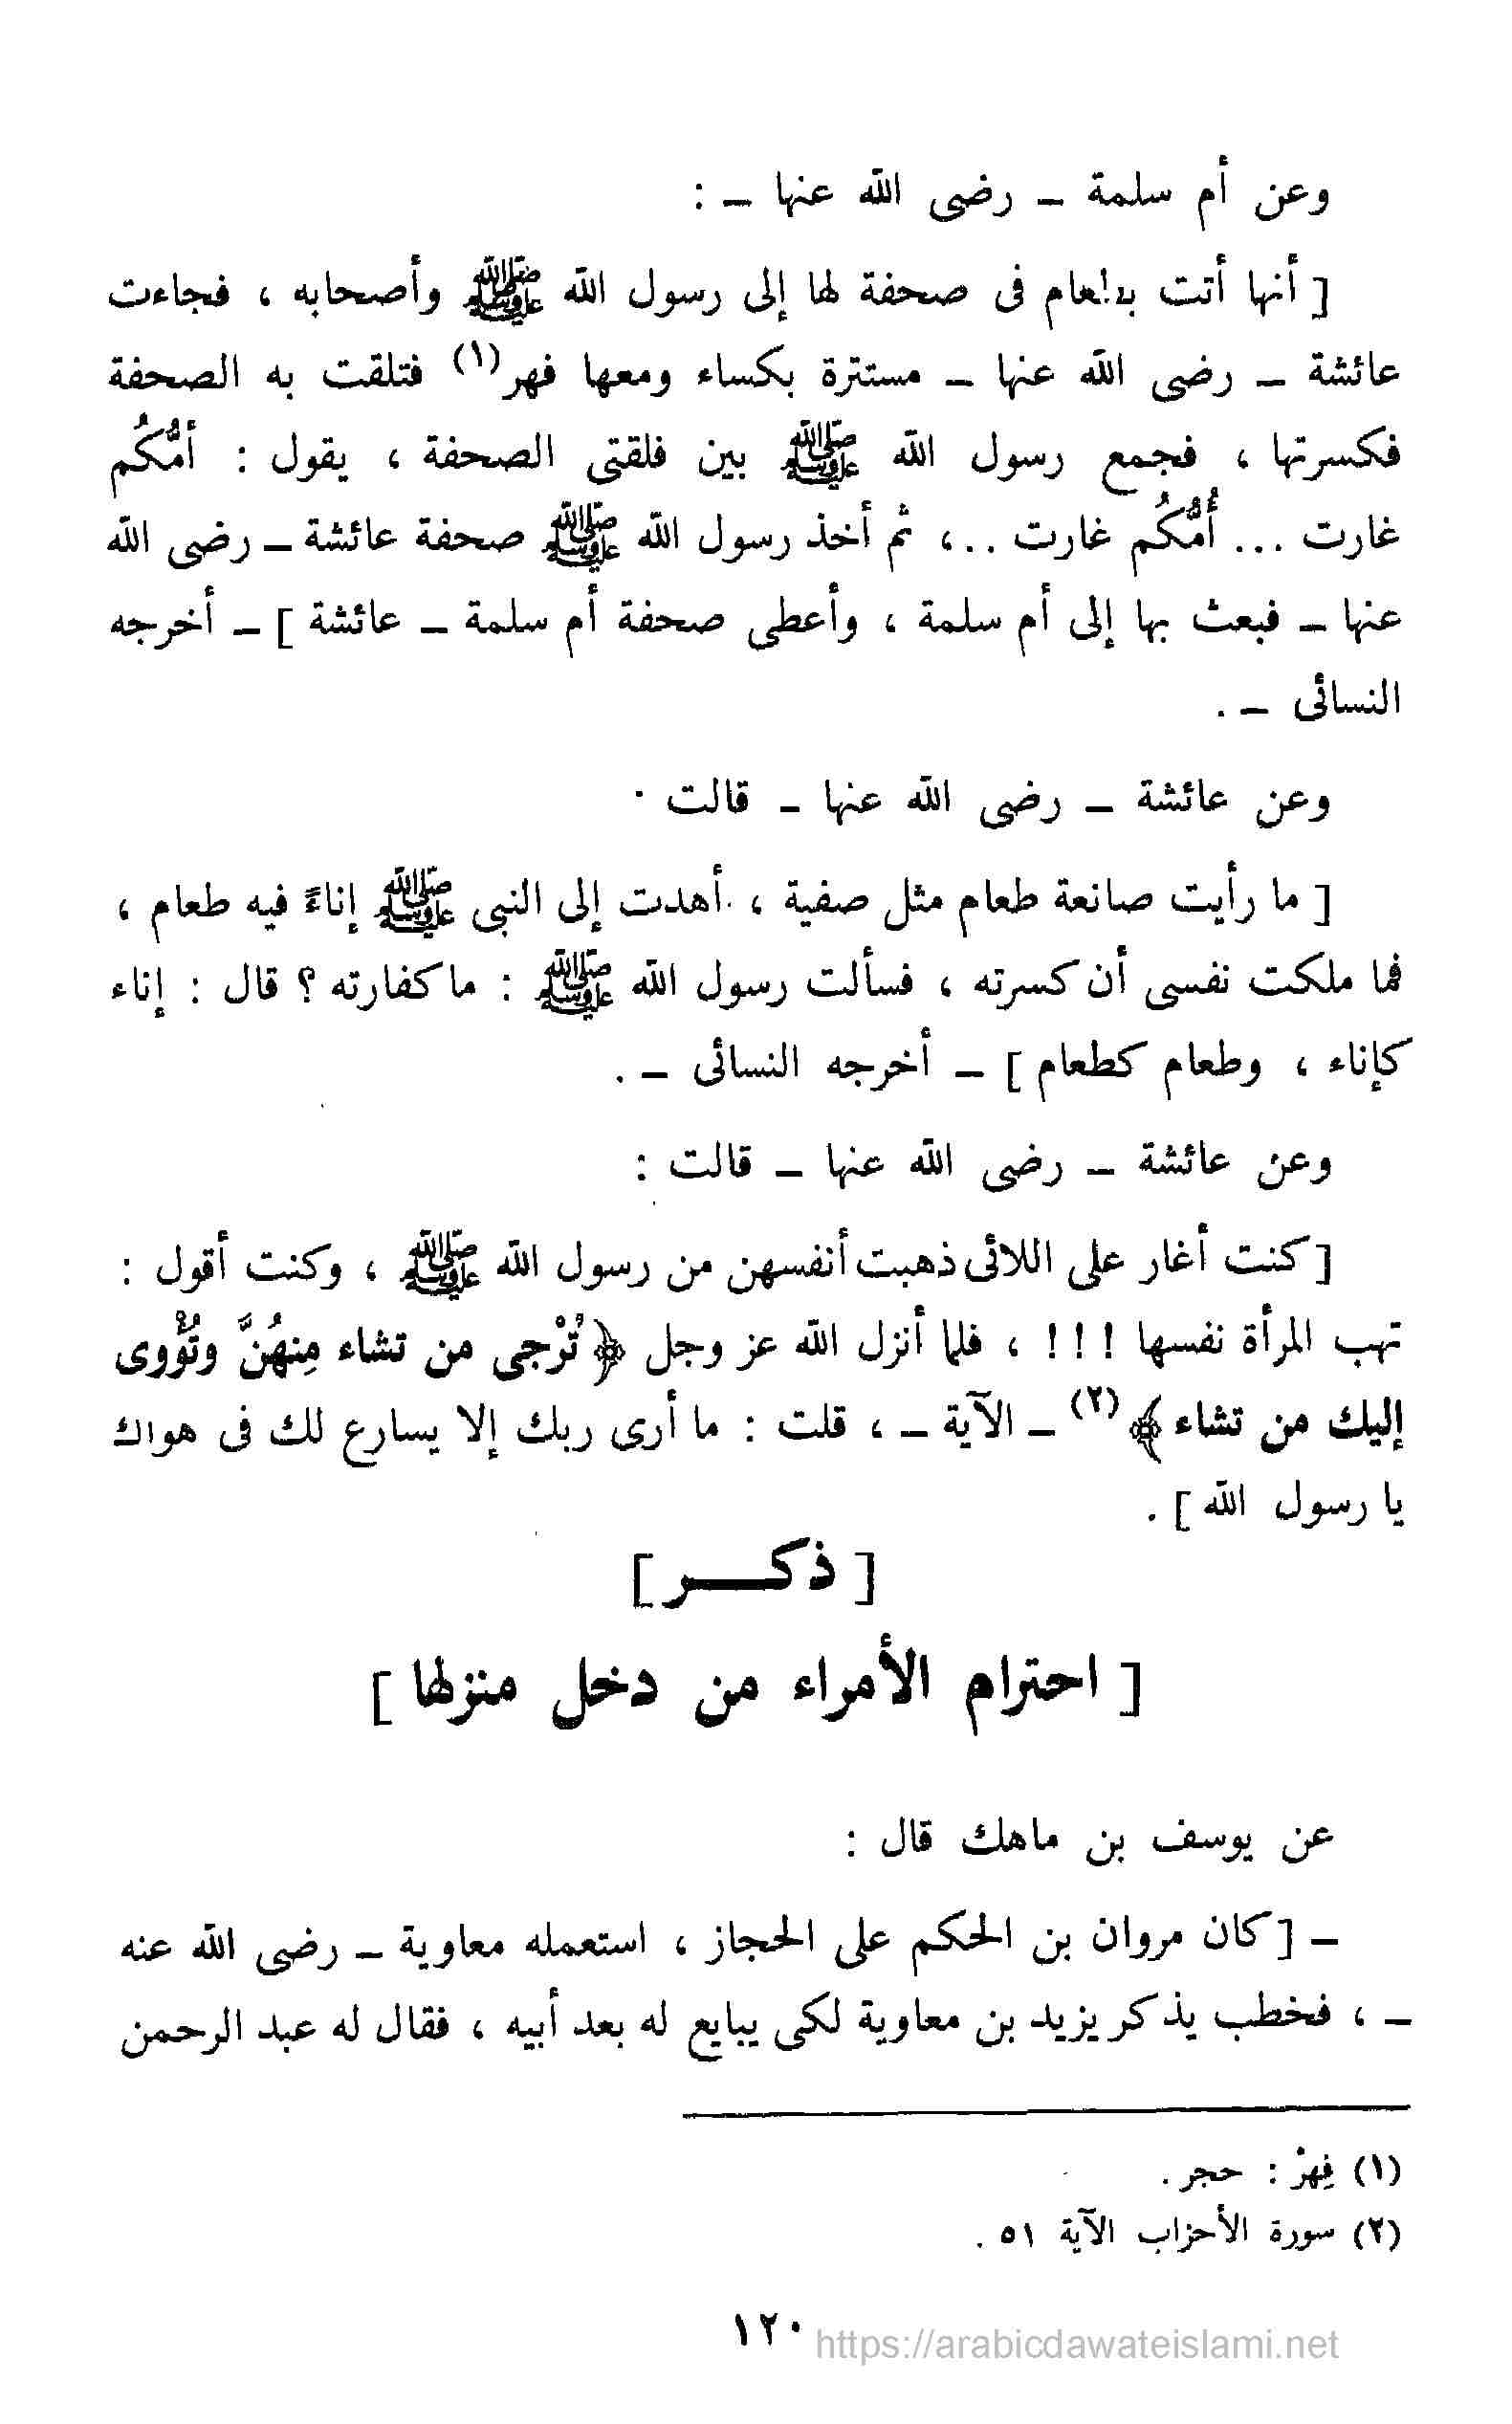 وعن أم سلمة – رضى الله عنها – :
[ أنها أتت بطعام فى صحفة لها إلى رسول الله ﷺ وأصحابه ، فجاءت
عائشة – رضى الله عنها – مستترة بكساء ومعها فهر(١) فتلقت به الصحفة
فكسرتها ، فجمع رسول الله ﷺ بين فلقتى الصحفة ، يقول : أمُّكُم
غارت ... أُمُّكُم غارت ..، ثم أخذ رسول الله ﷺ صحفة عائشة – رضى الله
عنها – فبعث بها إلى أم سلمة ، وأعطى صحفة أم سلمة – عائشة ] – أخرجه
النسائى – .
وعن عائشة – رضى الله عنها – قالت :
[ ما رأيت صانعة طعام مثل صفية ، أهدت إلى النبى ﷺ إناءً فيه طعام ،
فما ملكت نفسى أن كسرته ، فسألت رسول الله ﷺ : ما كفارته ؟ قال : إناء
كإناء ، وطعام كطعام ] – أخرجه النسائى – .
وعن عائشة – رضى الله عنها – قالت :
[ كنت أغار على اللائى ذهبت أنفسهن من رسول الله ﷺ ، وكنت أقول :
تهب المرأة نفسها ! ! ! ، فلما أنزل الله عز وجل ﴿ تُرْجى من تشاء مِنهُنَّ وتُؤْوى
إليك من تشاء ﴾(٢) – الآية – ، قلت : ما أرى ربك إلا يسارع لك فى هواك
يا رسول الله ] .
[ ذكـــر ]
[ احترام الأمراء من دخل منزلها ]
عن يوسف بن ماهك قال :
– [ كان مروان بن الحكم على الحجاز ، استعمله معاوية – رضى الله عنه
– ، فخطب يذكر يزيد بن معاوية لكى يبايع له بعد أبيه ، فقال له عبد الرحمن
(١) فِهرْ : حجر .
(٢) سورة الأحزاب الآية ٥١ .
١٢٠
https://arabicdawateislami.net